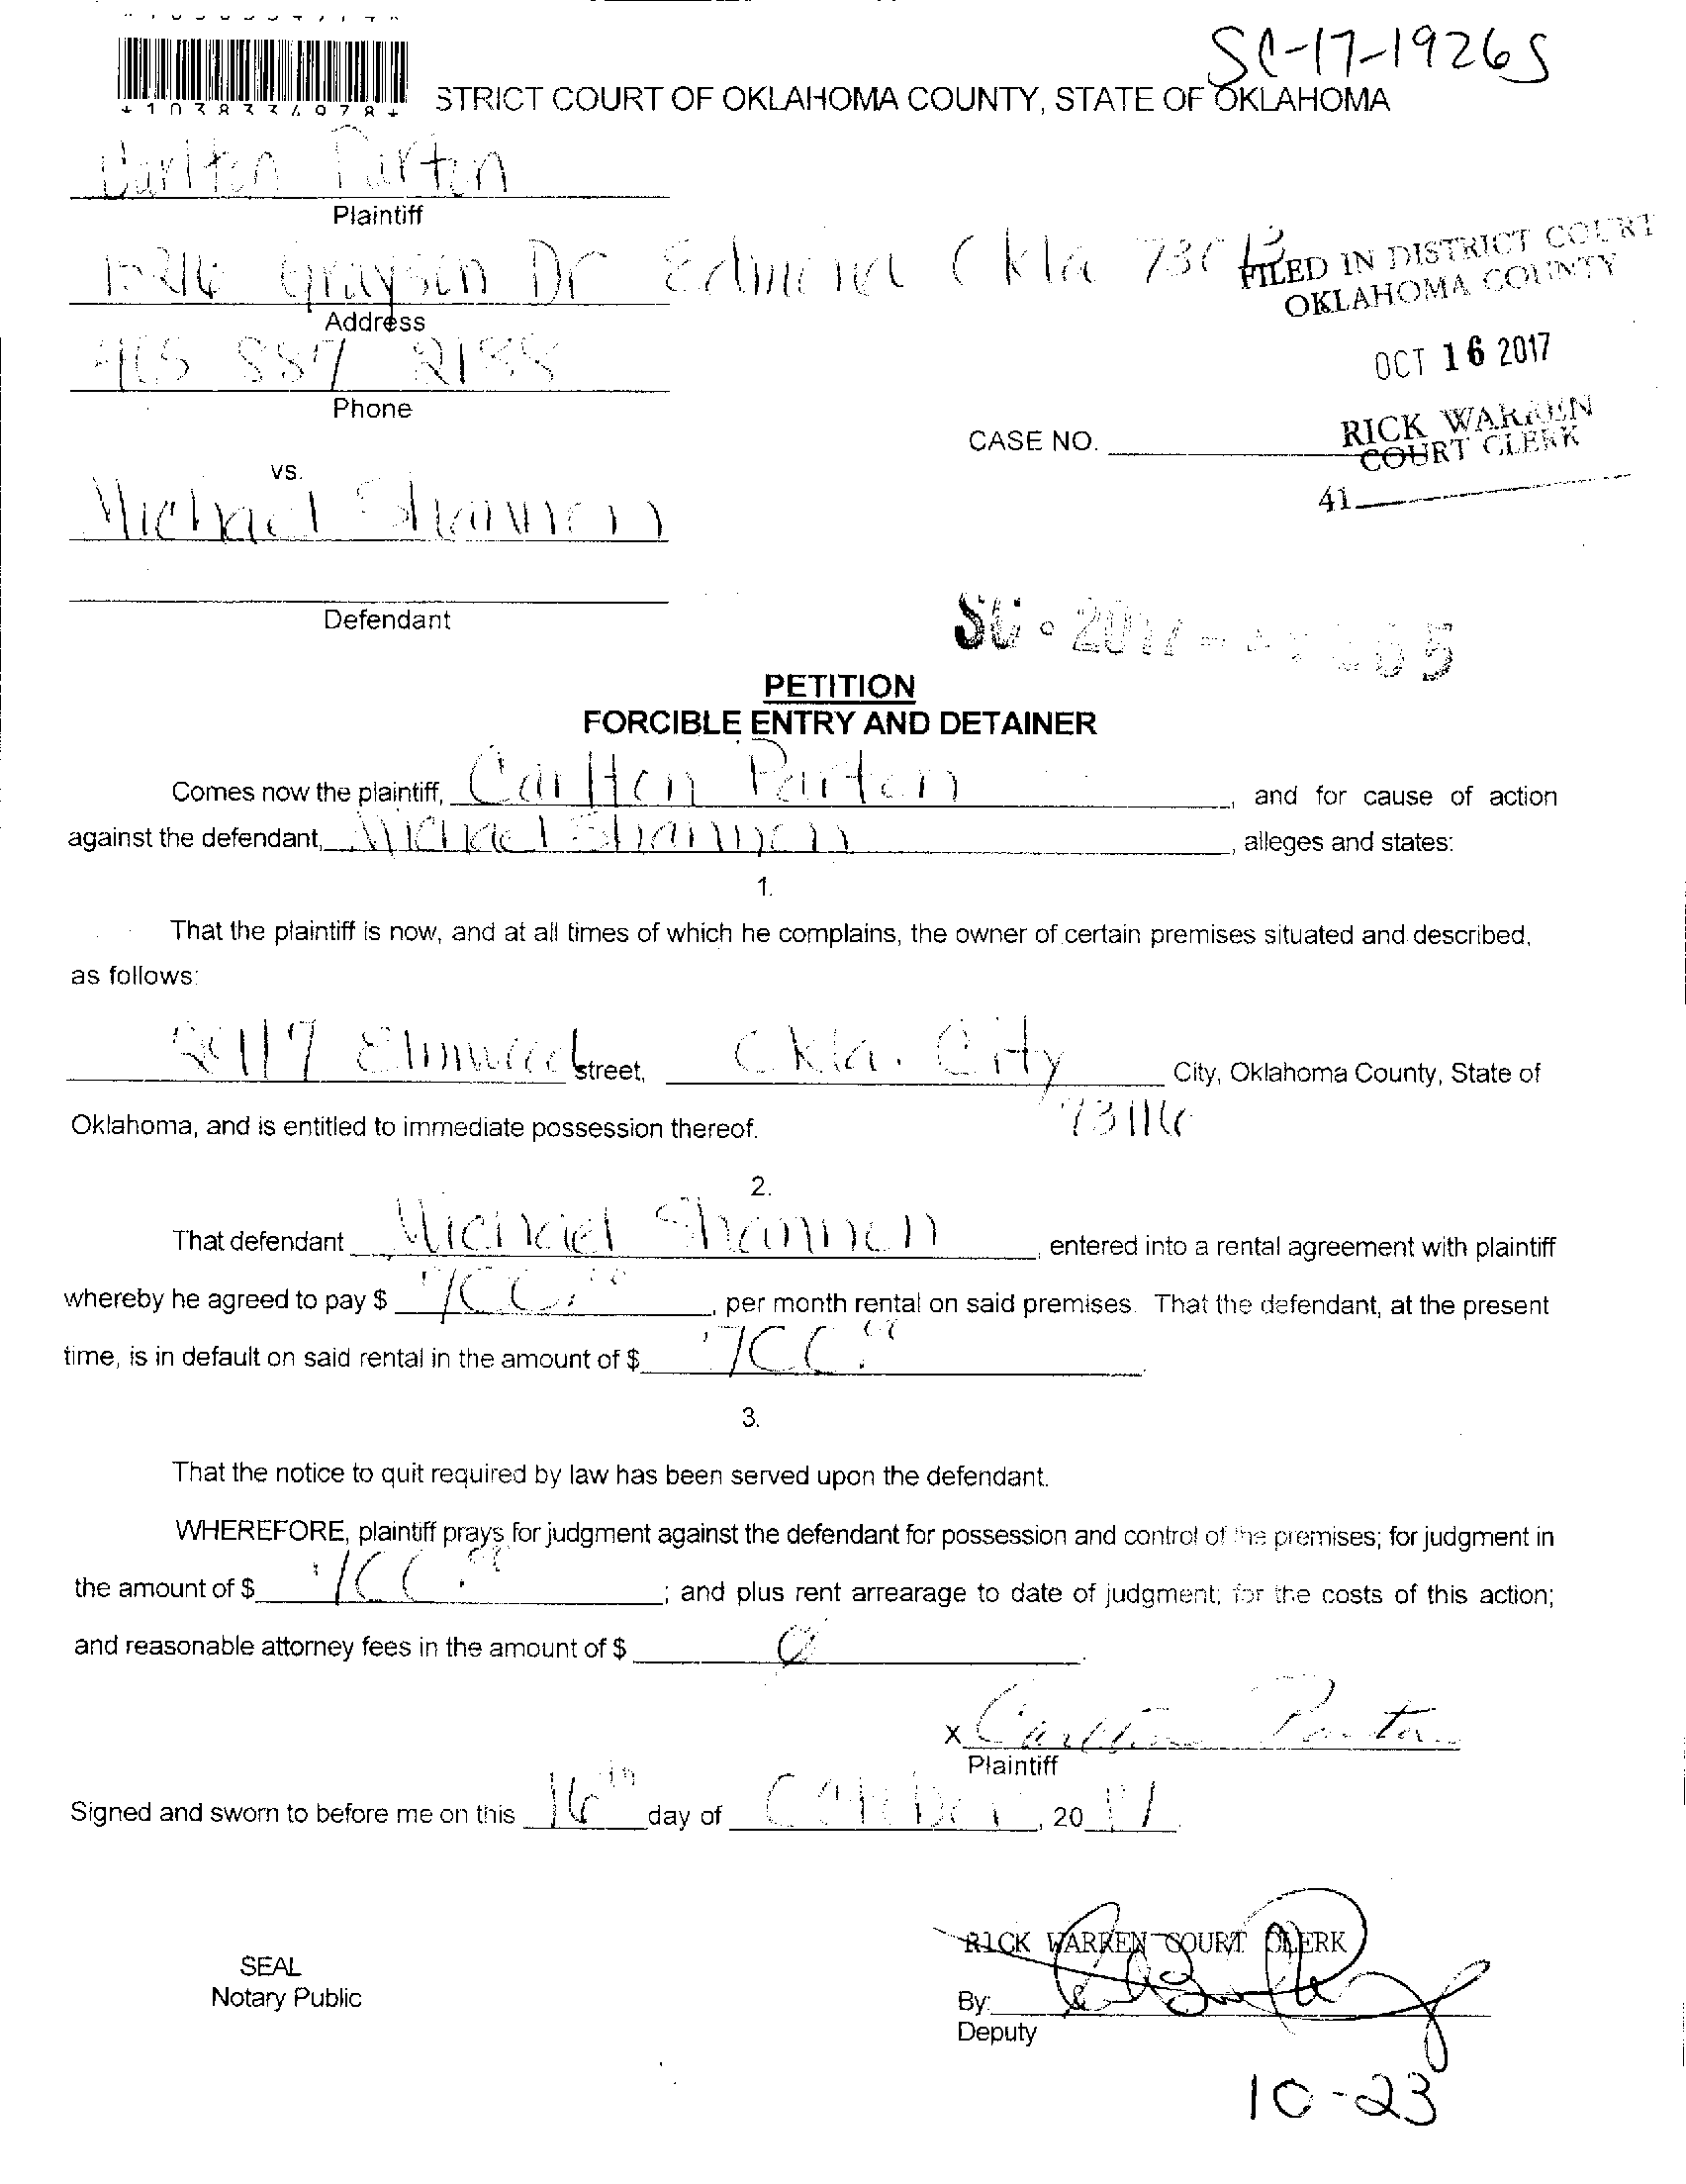 SC-17-19265
*1038334978*
STRICT COURT OF OKLAHOMA COUNTY, STATE OF OKLAHOMA
Carlton Parton
Plaintiff
Grayson Dr Edmond Okla 73013
Address
405 887 2188
Phone
FILED IN DISTRICT COURT
OKLAHOMA COUNTY
OCT 16 2017
RICK WARREN
COURT CLERK
41
CASE NO.
vs.
Michael Shannon
Defendant
PETITION
FORCIBLE ENTRY AND DETAINER
Comes now the plaintiff, Carlton Parton, and for cause of action
against the defendant, Michael Shannon, alleges and states:
1.
That the plaintiff is now, and at all times of which he complains, the owner of certain premises situated and described,
as follows:
2117 Elmwood street, Okla. City City, Oklahoma County, State of
73116
Oklahoma, and is entitled to immediate possession thereof.
2.
That defendant Michael Shannon, entered into a rental agreement with plaintiff
whereby he agreed to pay $ 700.00, per month rental on said premises. That the defendant, at the present
time, is in default on said rental in the amount of $ 700.00.
3.
That the notice to quit required by law has been served upon the defendant.
WHEREFORE, plaintiff prays for judgment against the defendant for possession and control of the premises; for judgment in
the amount of $ 700.00; and plus rent arrearage to date of judgment; for the costs of this action;
and reasonable attorney fees in the amount of $ 0.
x Carlton Parton
Plaintiff
Signed and sworn to before me on this 16th day of October, 2017.
SEAL
Notary Public
RICK WARREN COURT CLERK
By:
Deputy
10-23